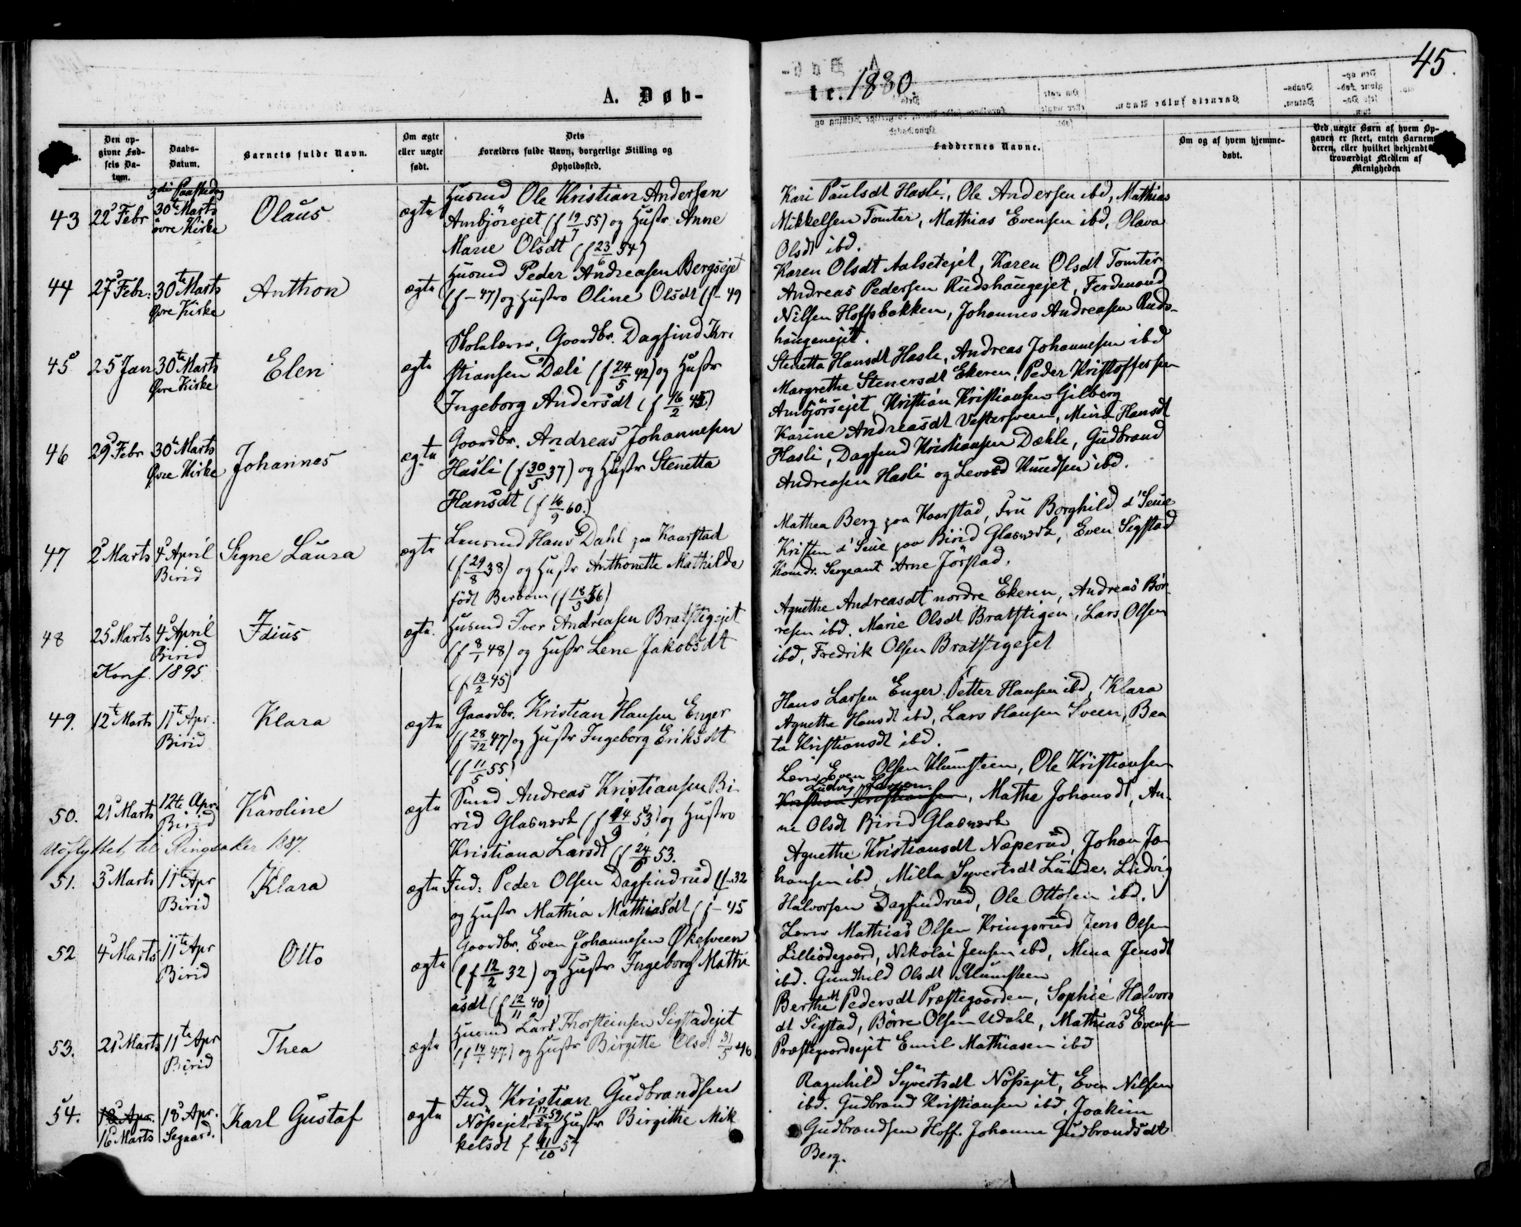 A. Døb-
te. 1880.
45.
Den opgivne Fødsels Datum.
Daabs-Datum.
Barnets fulde Navn.
Om ægte eller uægte født.
Dets Forældres fulde Navn, borgerlige Stilling og Opholdssted.
Faddernes Navne.
Om og af hvem hjemmedøbt.
Ved uægte Børn af hvem Opgaven er skeet, enten Barnemoderen, eller hvilket bekjendt troværdigt Medlem af Menigheden
43 22 Febr 30te Marts Øvre Kirke Olaus ægte
Husmd Ole Kristian Andersen
Ambjörejet (f 55) og Hustr. Anne
Marie Olsdt (f 23/6 54)
Kari Paulsdt Hasli, Ole Andersen ibd, Mathias
Mikkelsen Tomter, Mathias Evensen ibd, Olava
Olsdt ibd.
44 27 Febr. 30te Marts Øvre Kirke Anthon ægte
Husmd Peder Andreasen Bergsejet
(f - 47) og Hustro Oline Olsdt (f - 49
Karen Olsdt Aalsetejet, Karen Olsdt Tomter
Andreas Pedersen Rudshaugejet, Ferdinand
Nilsen Hoffsbakken, Johannes Andreasen Ruds-
haugenejet.
45 25 Jan 30te Marts Øvre Kirke Elen ægte
Skolelærer, Gaardbr. Dagfind Kri
stiansen Dæli (f 24/5 42) og Hustr
Ingeborg Andersdt (f 16/2 45)
Stenetta Hansdt Hasle, Andreas Johannesen ibd
Margrethe Stenersdt Ekeren, Peder Kristoffersen
Ambjörsejet Kristian Kristiansen Gilberg
46 29 Febr 30te Marts Øvre Kirke Johannes ægte
Gaardbr. Andreas Johannesen
Hasli (f 30/5 37) og Hustr Stenetta
Hansdt (f 16/9 60.)
Karine Andreasdt Vestersveen, Mina Hansdt
Hasli, Dagfind Kristiansen Dæhle, Gudbrand
Andreasen Hasli og Knudsen ibd.
47 2 Marts 4 April Birid Signe Laura ægte
Lensmd Hans Dahl paa Kaarstad
(f 29/8 38) og Hustr Anthonette Mathilde
født (f 18/3 56)
Mathea Berg paa Kaarstad, Fru Borghild d'Seue
Kristen d'Seue paa Birid Glasværk, Even Sigstad
Komdr. Sergeant Arne Jörstad.
48 25 Marts 4 April Birid Idius ægte.
Konf. 1895
Husmd Iver Andreasen Bratstigejet
(f 8/1 48) og Hustr Lene Jakobsdt
(f 13/2 45)
Agnethe Andreasdt nordre Ekeren, Andreas Bör-
resen ibd. Marie Olsdt Bratstigen, Lars Olsen
ibd, Fredrik Olsen Bratstigejet
49. 12te Marts 11te Apr. Birid Klara ægte
Gaardbr. Kristian Hansen Enger
(f 28/12 47) og Hustr Ingeborg Eriksdt
(f 11/5 55.)
Hans Larsen Enger. Petter Hansen ibd, Klara
Agnethe Hansdt ibd, Lars Hansen Sveen, Bea
ta Kristiansdt ibd.
50. 21 Marts 12te Apr. Birid Karoline ægte
Udflyttet til Ringsaker 1887.
Smed Andreas Kristiansen Bi-
rid Glasværk (f 14/9 53) og Hustro
Kristiana Larsdt (f 24 53.
Lærer Even Olsen Klumsteen, Ole Kristiansen
Ludvig
Kristian Kristiansen, Mathe Johansdt, An-
ne Olsdt Birid Glasværk
51. 3 Marts 11te Apr Birid Klara ægte
Ind. Peder Olsen Dagfindrud (f - 32
og Hustr Mathia Mathiasdt (f - 45
Agnethe Kristiansdt Næperud, Johan Jo-
hansen ibd, Milla Syvertsdt Lunde, Ludvig
Halvorsen Dagfindrud, Ole Ottosen ibd.
52 4 Marts 11te Apr Birid Otto ægte
Gaardbr. Even Johannesen Økelsveen
(f 12/2 32) og Hustr Ingeborg Mathi
asdt (f 12/11 40)
Lærer Mathias Olsen Kringsrud Jens Olsen
Lilleödegaard, Nikolai Jensen ibd, Mina Jensdt
ibd. Gunhild Olsdt Klumsteen
53. 21 Marts 11te Apr Birid Thea ægte
Husmd Lars Thorsteinsen Sigstadejet
47) og Hustr Birgitte Olsdt 46
Berthe Pedersdt Præstegaarden, Sophie Halvors
dt Sigstad, Börre Olsen Udahl, Mathias Evensen
Præstegaardsejet Emil Mathiasen ibd
54. 18 Apr. 16 Marts 18 Apr. Segaard. Karl Gustaf ægte
Ind. Kristian Gudbrandsen
Nøssejet og Hustr Birgithe Mik
kelsdt f 11/10 57
Ragnhild Syvertsdt Nøssejet, Even Nilsen
ibd. Gudbrand Kristiansen ibd. Joakim
Gudbrandsen Hoff. Johanne Gudbrandsdt
Berg.